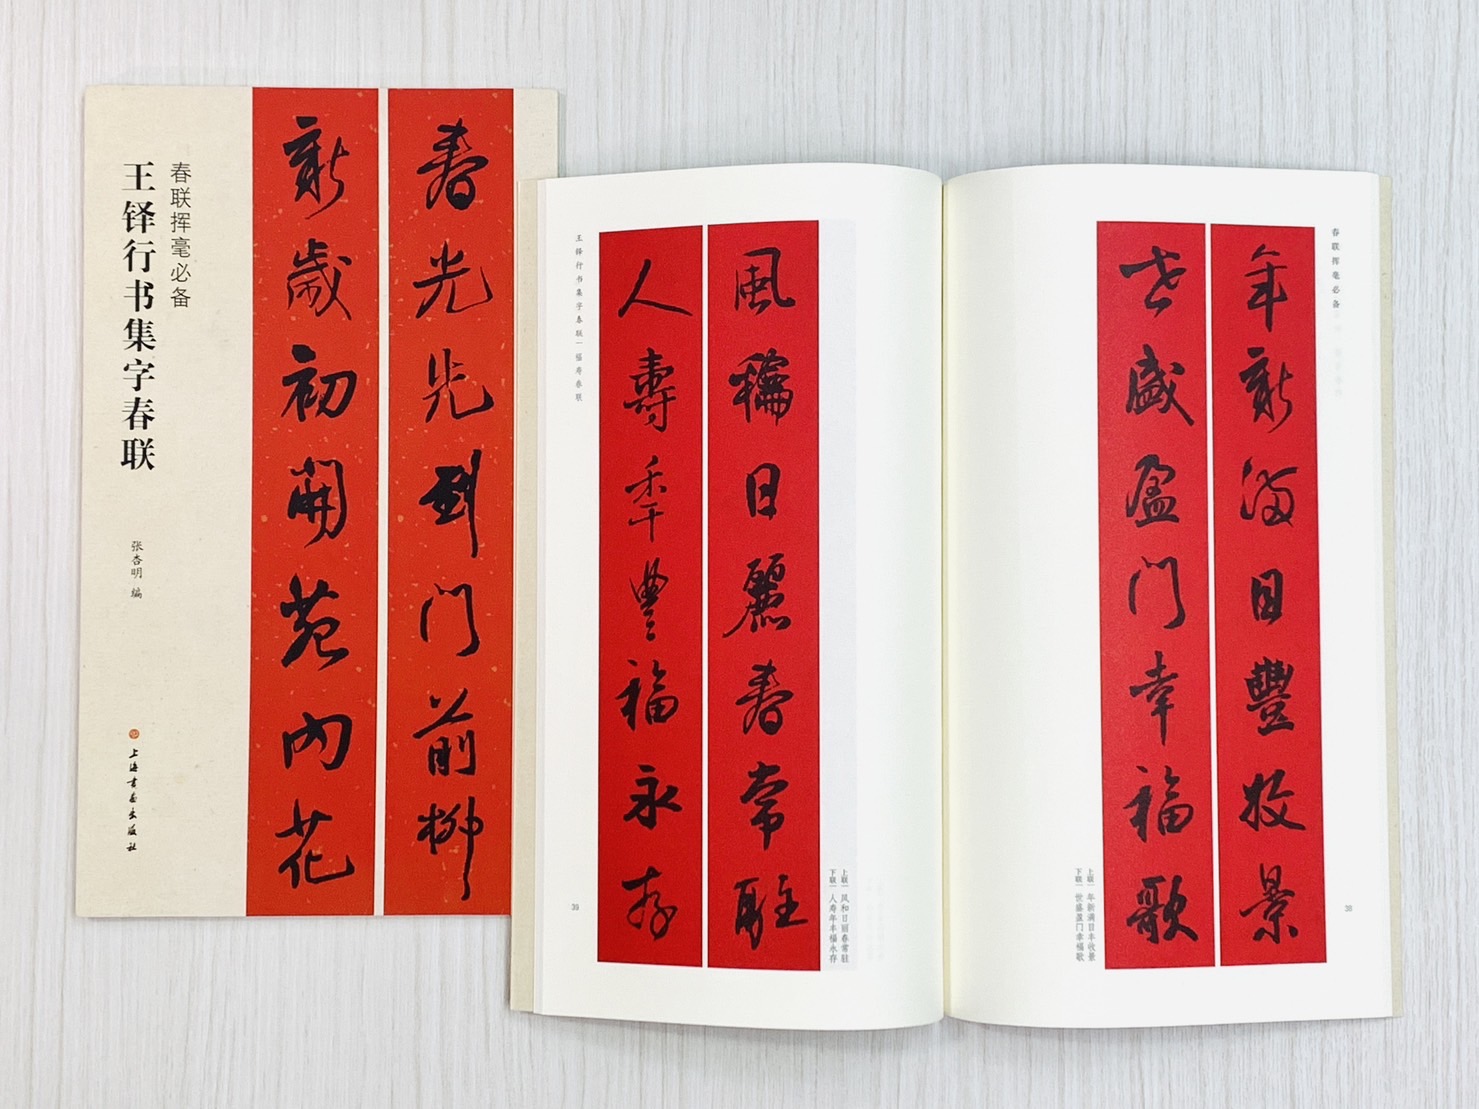 春联挥毫必备
王铎行书集字春联
张杏明 编
上海书画出版社
春光先到门前柳
新歲初開苑內花
春联挥毫必备
年新满目豐收景
世盛盈门幸福歌
上联｜年新满目丰收景
下联｜世盛盈门幸福歌
38
王铎行书集字春联｜福寿春联
風和日麗春常駐
人壽年豐福永存
上联｜风和日丽春常驻
下联｜人寿年丰福永存
39